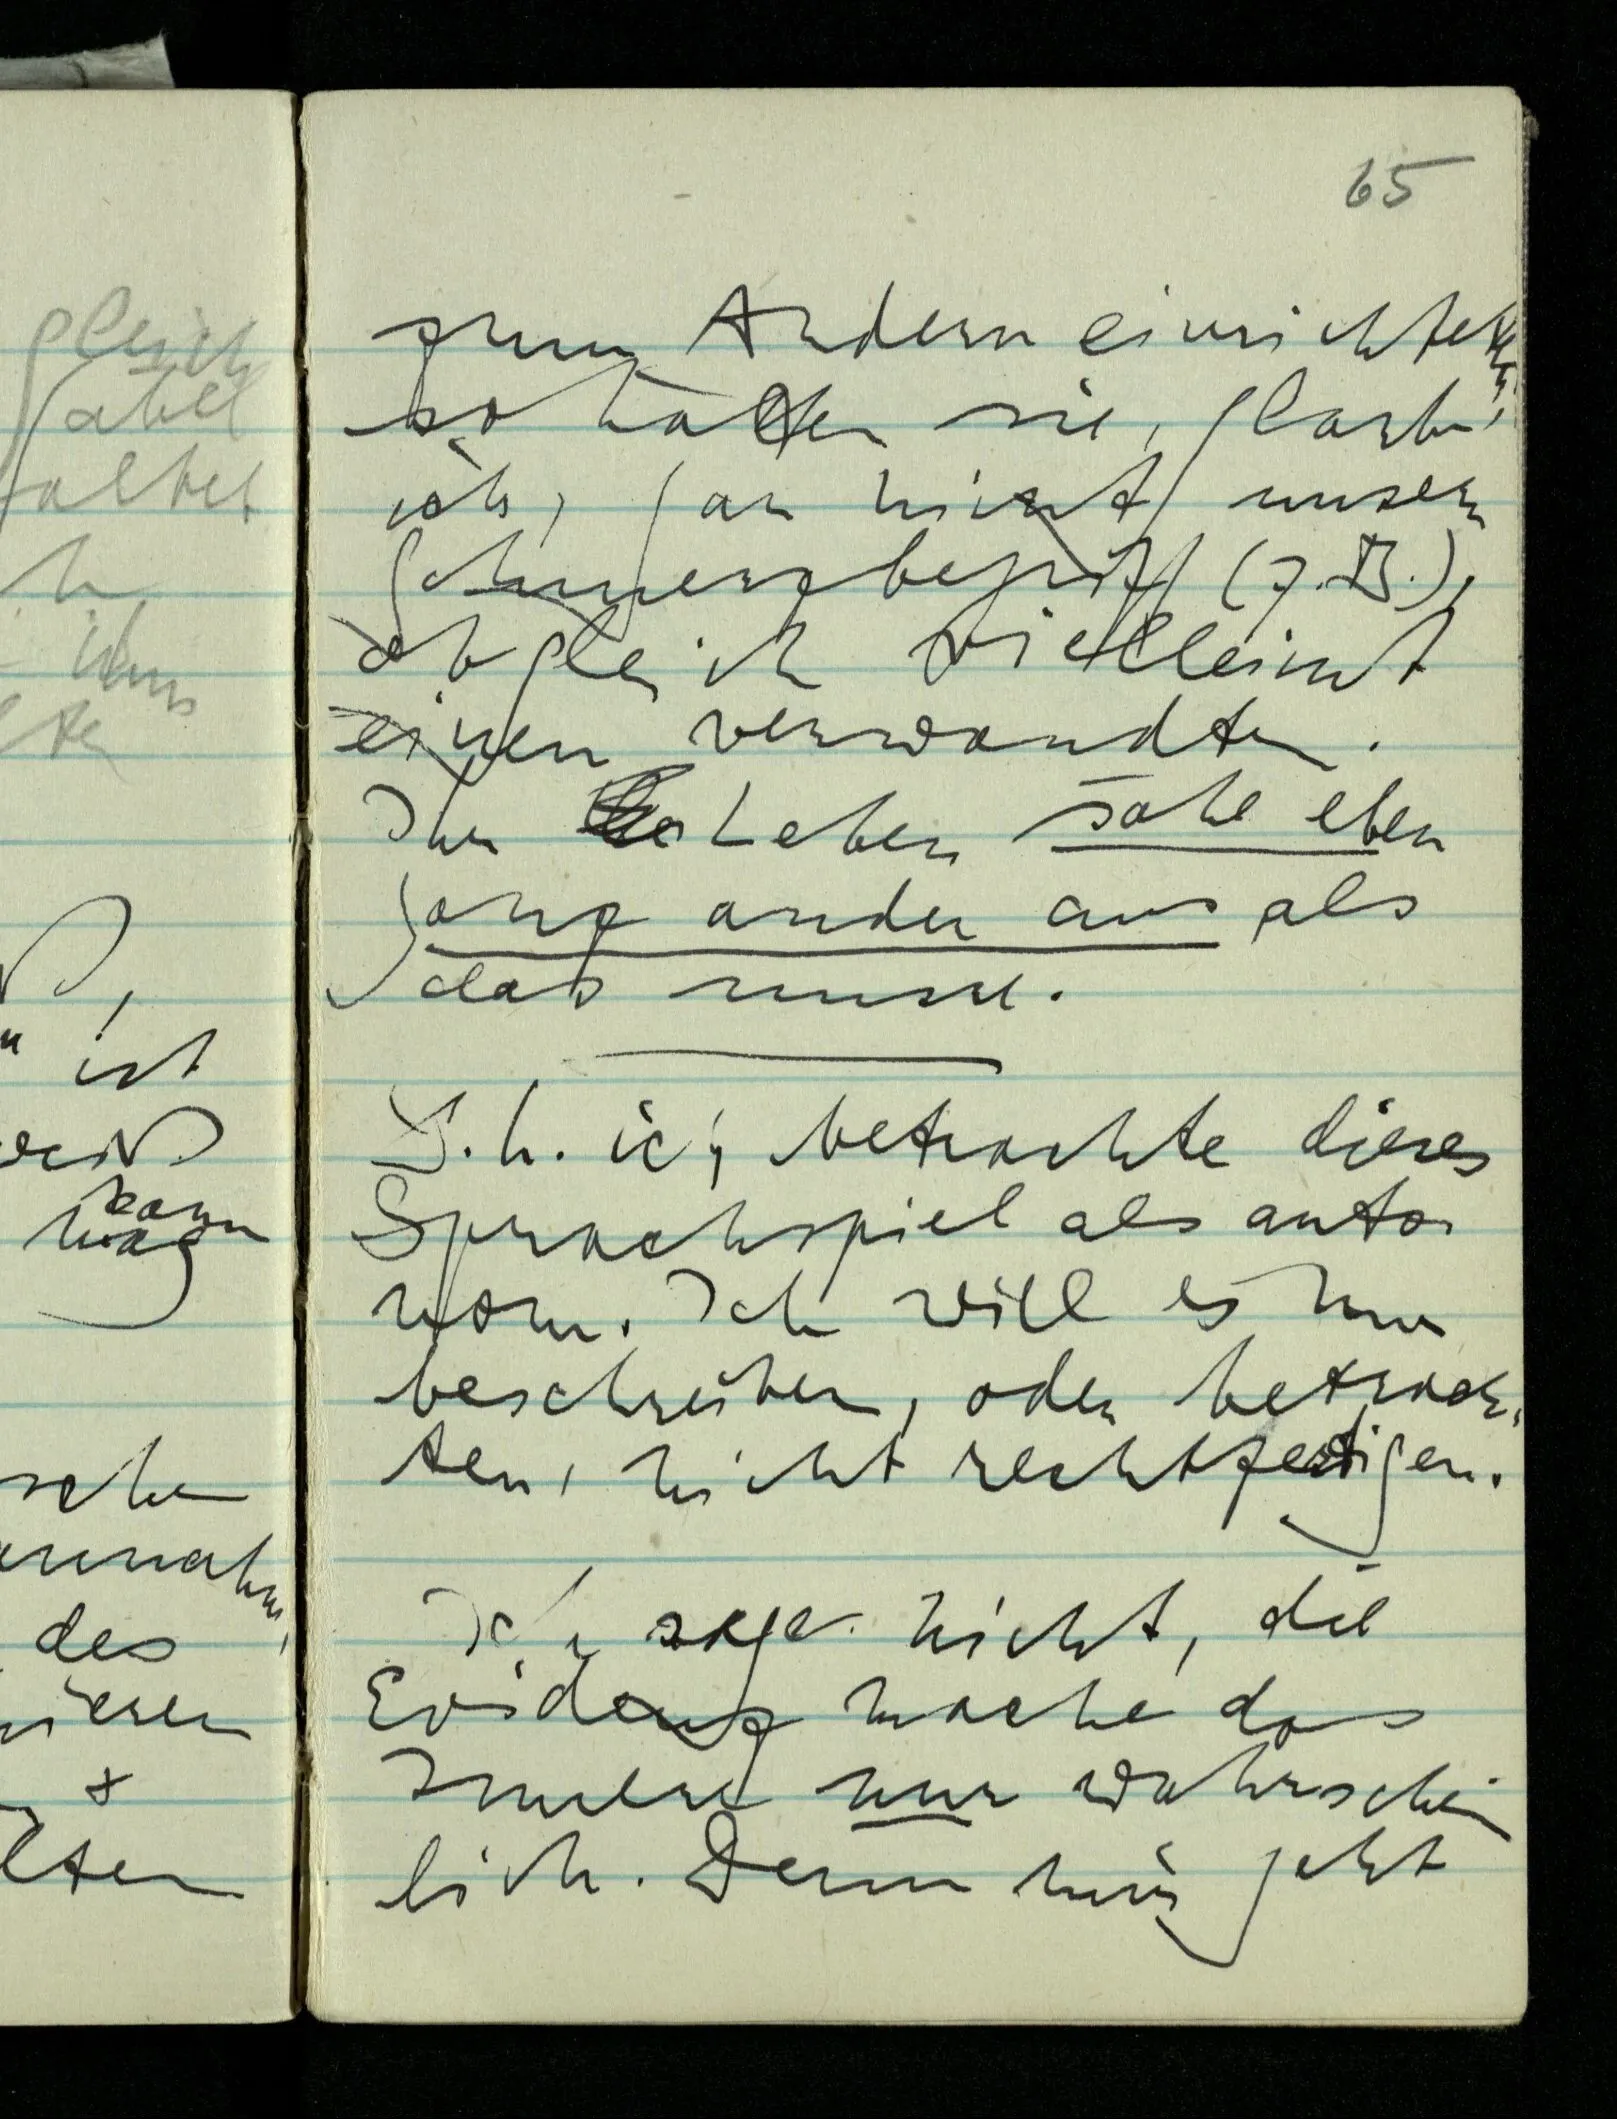 65
gleich
zum Andern einrichteten,
so hätten sie, glaube
ich, gar nicht unsern
Schmerzbegriff (z.B.),
obgleich vielleicht
einen verwandten.
Ihr Leben sähe eben
ganz anders aus als
das unsre.
D.h. ich betrachte dieses
Sprachspiel als auto-
nom. Ich will es nur
beschreiben, oder betrach-
ten, nicht rechtfertigen.
Ich sage nicht, die
Evidenz mache das
Innere nur wahrschein
lich. Denn mir geht
ist
kann
mag
des
+